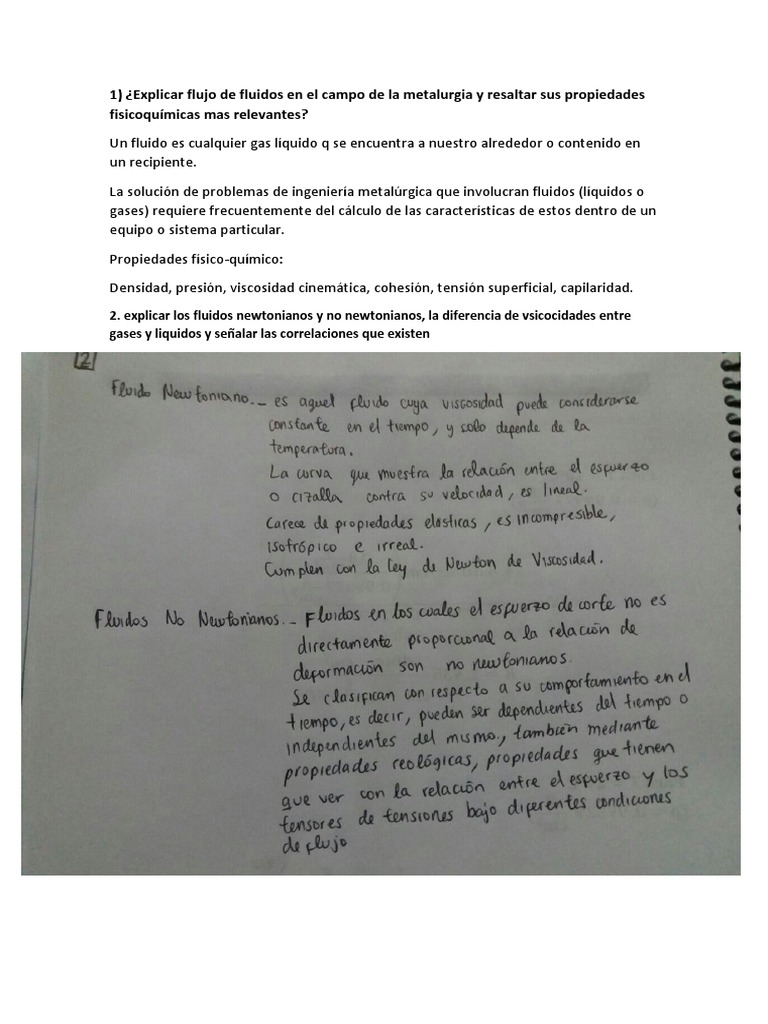 1) ¿Explicar flujo de fluidos en el campo de la metalurgia y resaltar sus propiedades
fisicoquímicas mas relevantes?
Un fluido es cualquier gas líquido q se encuentra a nuestro alrededor o contenido en
un recipiente.
La solución de problemas de ingeniería metalúrgica que involucran fluidos (liquidos o
gases) requiere frecuentemente del cálculo de las características de estos dentro de un
equipo o sistema particular.
Propiedades físico-químico:
Densidad, presión, viscosidad cinemática, cohesión, tensión superficial, capilaridad.
2. explicar los fluidos newtonianos y no newtonianos, la diferencia de vsicocidades entre
gases y liquidos y señalar las correlaciones que existen
2
Fluido Newtoniano._ es aquel fluido cuya viscosidad puede considerarse
constante en el tiempo, y solo depende de la
temperatura.
La curva que muestra la relación entre el esfuerzo
o cizalla contra su velocidad, es lineal.
Carece de propiedades elasticas, es incompresible,
isotrópico e irreal.
Cumplen con la Ley de Newton de Viscosidad.
Fluidos No Newtonianos._ Fluidos en los cuales el esfuerzo de corte no es
directamente proporcional a la relación de
deformación son no newtonianos.
Se clasifican con respecto a su comportamiento en el
tiempo, es decir, pueden ser dependientes del tiempo o
independientes del mismo., también mediante
propiedades reológicas, propiedades que tienen
que ver con la relación entre el esfuerzo y los
tensores de tensiones bajo diferentes condiciones
de flujo